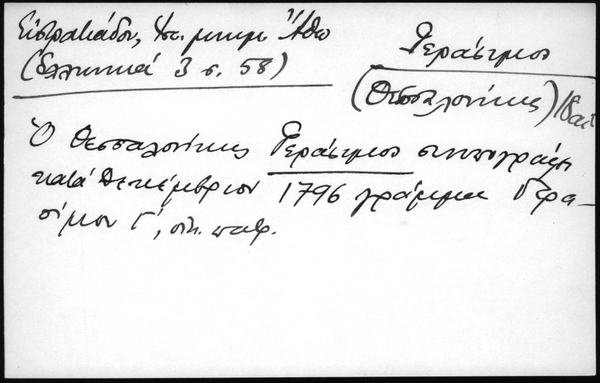 Εὐστρατιάδου, Ἱστ. μνημ. Ἄθω
(Ἑλληνικά 3 σ. 58)
Γεράσιμος
(Θεσσαλονίκης)
Ὁ Θεσσαλονίκης Γεράσιμος συνυπογράφει
κατά Δεκέμβριον 1796 γράμμα Γερα-
σίμου Γ', οἰκ. πατρ.